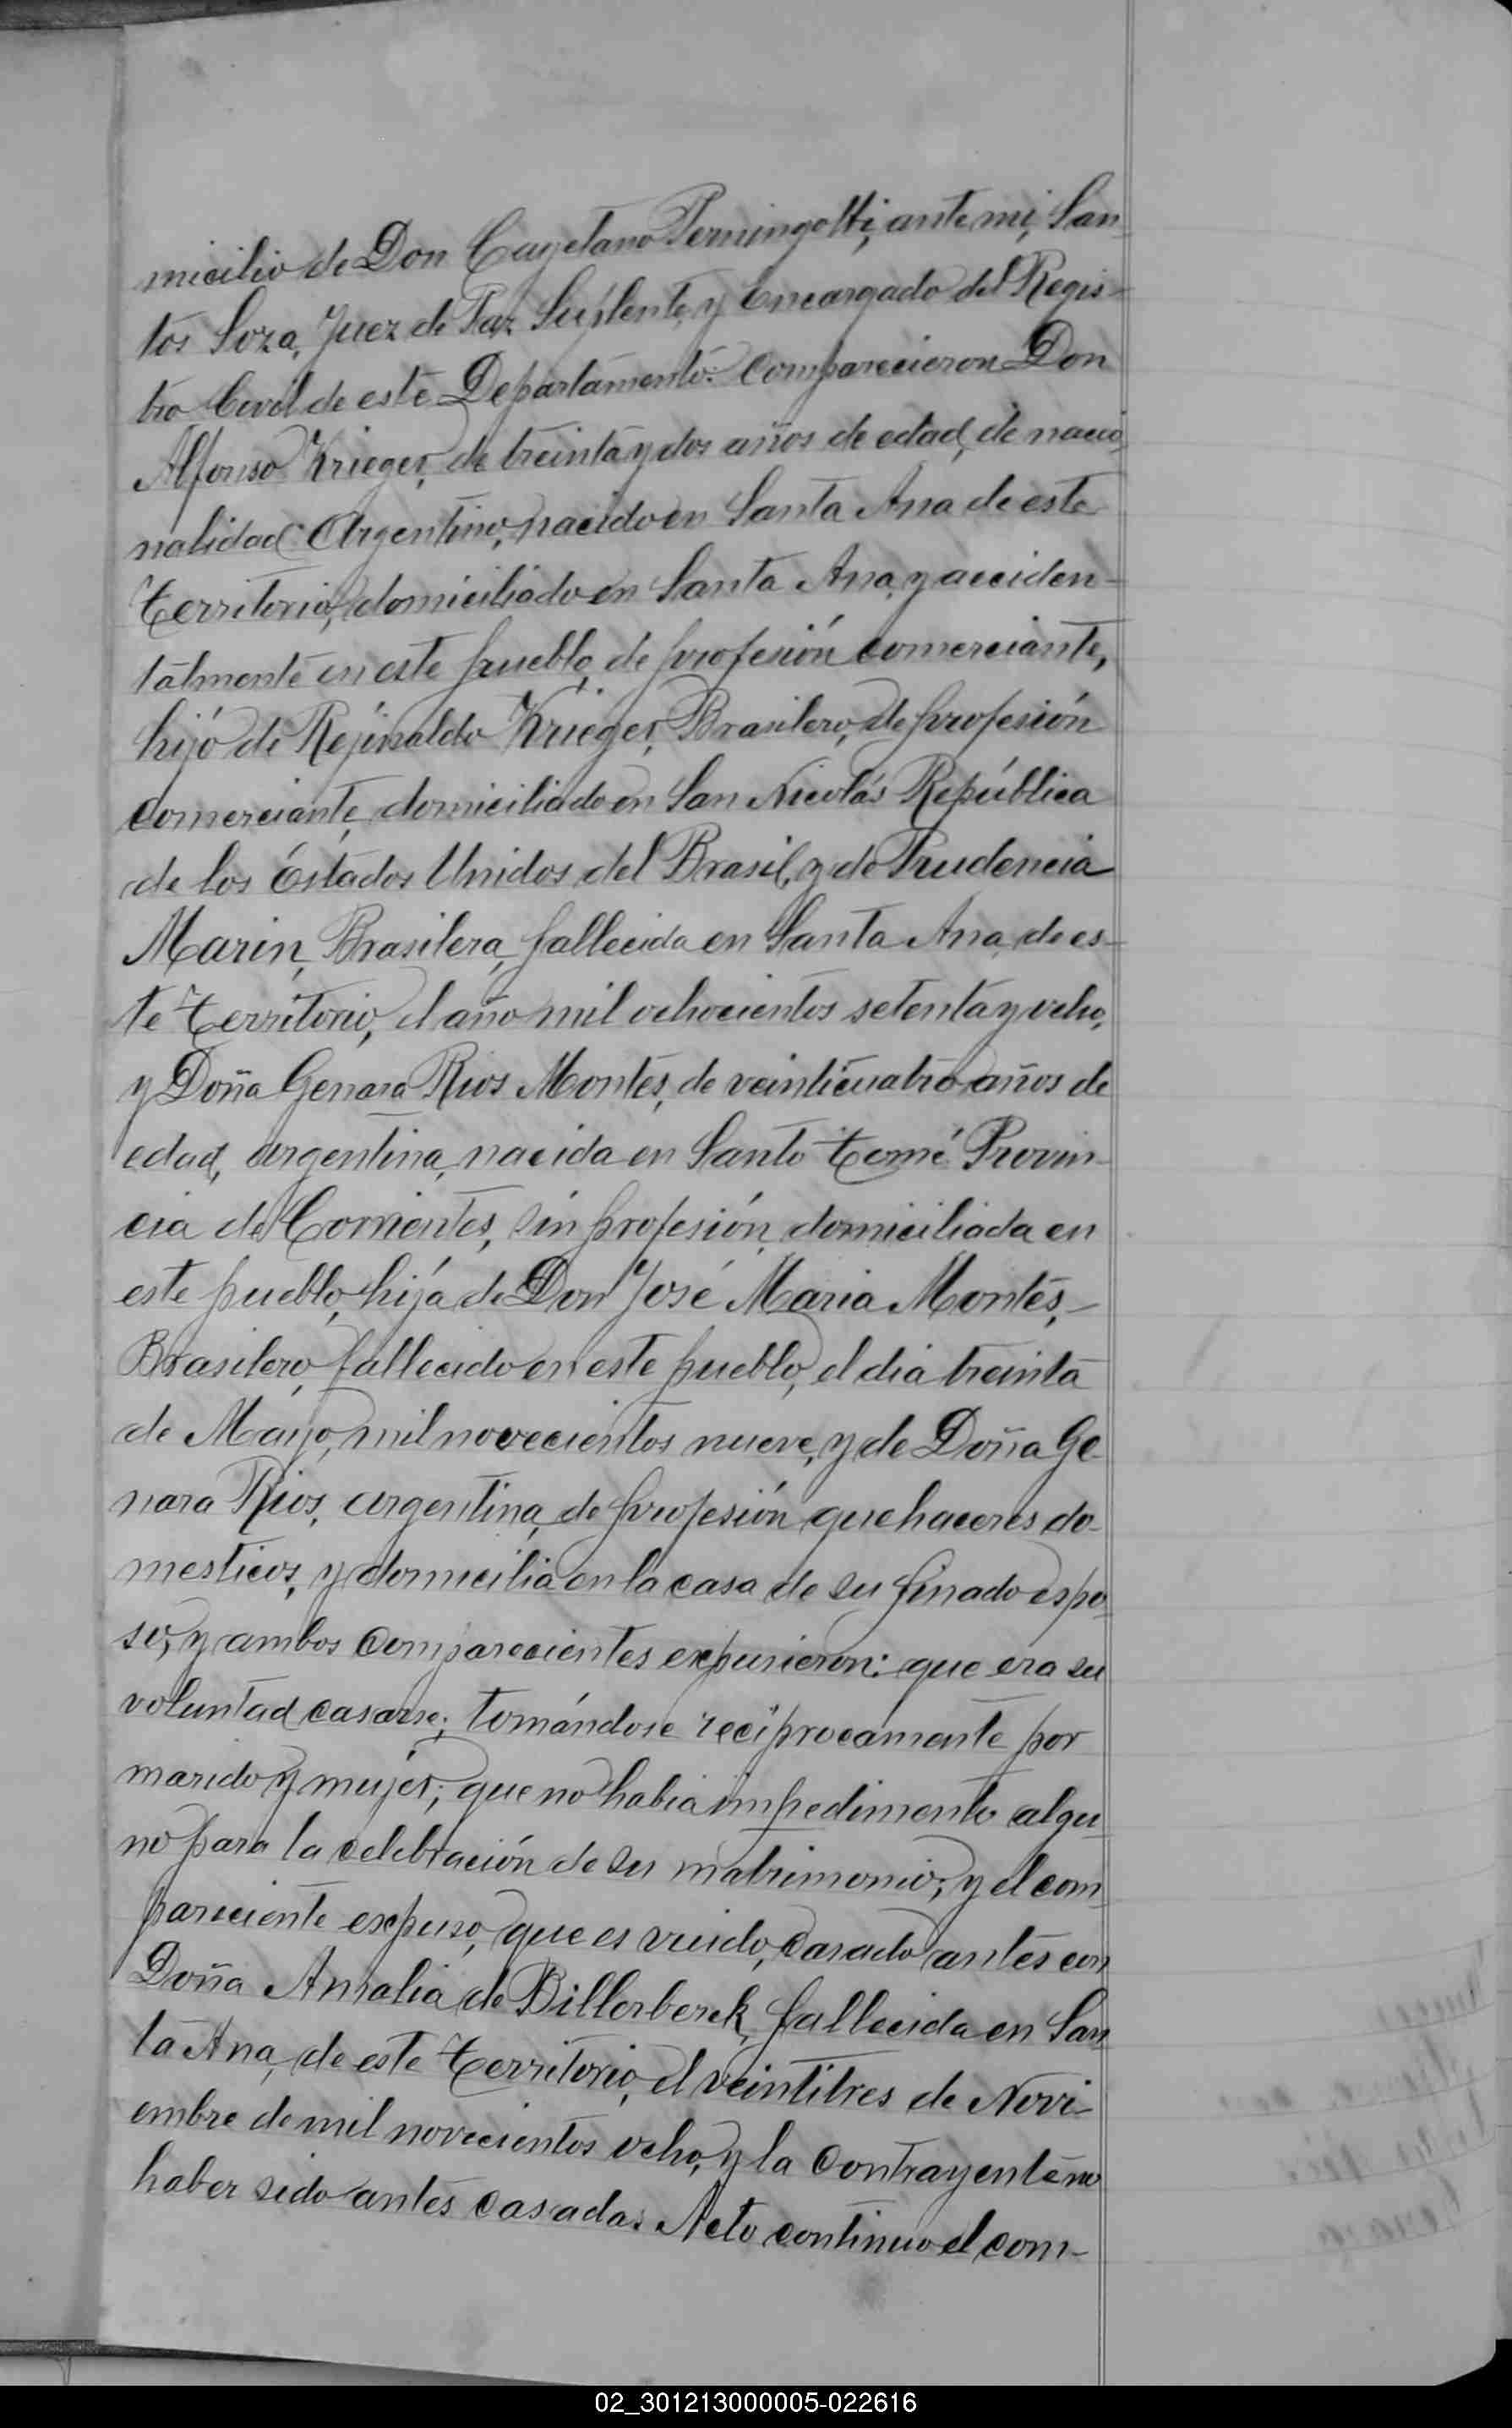 micilio de Don Cayetano Permingotti, ante mi, San-
tos Soza, Juez de Paz Suplente, y Encargado del Regis-
tro Civil de este Departamento: Comparecieron Don
Alfonso Krieger, de treinta y dos años de edad, de nacio-
nalidad Argentino, nacido en Santa Ana de este
Territorio, domiciliado en Santa Ana, y acciden-
talmente en este pueblo, de profesión comerciante,
hijo de Rejinaldo Krieger, Brasilero, de profesión
comerciante, domiciliado en San Nicolás República
de los Estados Unidos del Brasil, y de Prudencia
Marin, Brasilera, fallecida en Santa Ana, de es-
te Territorio, el año mil ochocientos setenta y ocho,
y Doña Genara Rios Montes, de veinticuatro años de
edad, argentina, nacida en Santo Tomé Provin-
cia de Corrientes, sin profesión, domiciliada en
este pueblo, hija de Don José Maria Montes,-
Brasilero, fallecido en este pueblo, el dia treinta
de Mayo, mil novecientos nueve, y de Doña Ge-
nara Rios, argentina, de profesión quehaceres do-
mesticos, y domicilia en la casa de su finado espo-
so, y ambos comparecientes expusieron: que era su
voluntad casarse, tomándose reciprocamente por
marido y mujer; que no habia impedimento algu-
no para la celebración de su matrimonio; y el com-
pareciente expuso, que es viudo, casado antes con
Doña Amalia de Billerbeck, fallecida en San-
ta Ana, de este Territorio, el veintitres de Novi-
embre de mil novecientos ocho, y la contrayente no
haber sido antes casada. Acto continuo el com-
02_301213000005-022616